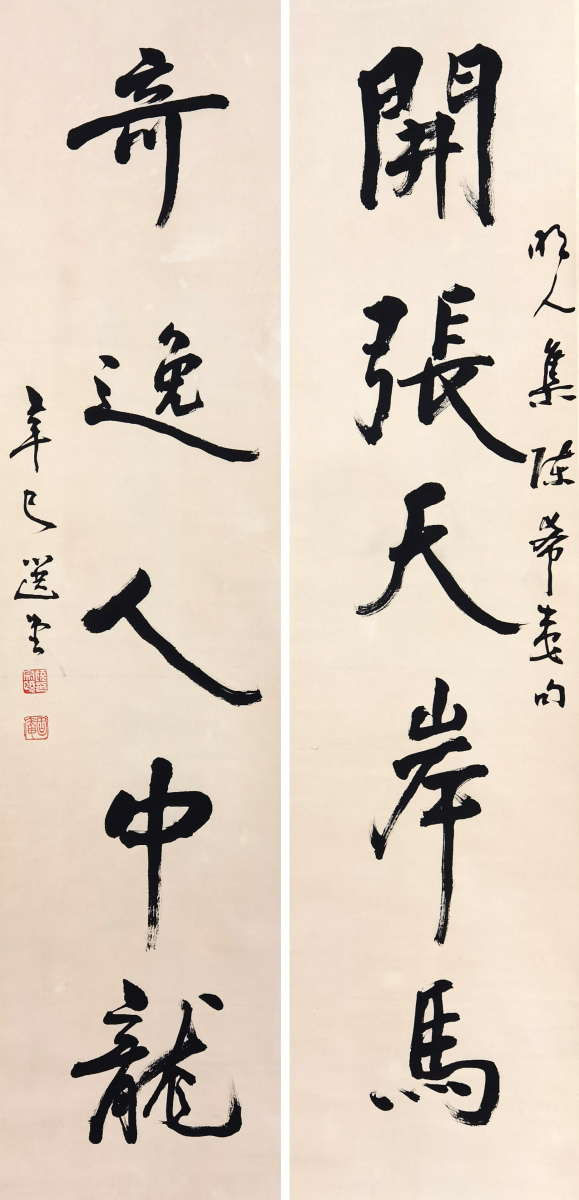 開張天岸馬
明人集陳希夷句
奇逸人中龍
辛巳選堂